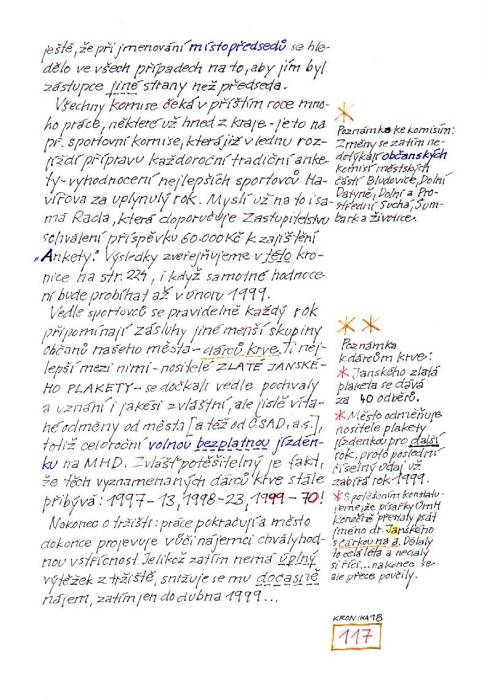 ještě, že při jmenování místopředsedů se hle-
dělo ve všech případech na to, aby jím byl
zástupce jiné strany než předseda.
Všechny komise čeká v příštím roce mno-
ho práce, některé už hned z kraje - jeto na
př. sportovní komise, která již v lednu roz-
jíždí přípravu každoroční tradiční anke-
ty - vyhodnocení nejlepších sportovců Ha-
vířova za uplynulý rok. Myslí už na to i sa-
má Rada, která doporučuje Zastupitelstvu
schválení příspěvku 60.000 Kč k zajištění
"Ankety." Výsledky zveřejňujeme v této kro-
nice na str. 224, i když samotné hodnoce-
ní bude probíhat až v únoru 1999.
Vedle sportovců se pravidelně každý rok
připomínají zásluhy jiné menší skupiny
občanů našeho města - dárců krve. Ti nej-
lepší mezi nimi - nositelé ZLATÉ JANSKÉ-
HO PLAKETY - se dočkali vedle pochvaly
a uznání i jakési zvláštní, ale jistě víta-
né odměny od města [a též od ČSAD, a.s.],
totiž celoroční volnou bezplatnou jízden-
ku na MHD. Zvlášť potěšitelný je fakt,
že těch vyznamenaných dárců krve stále
přibývá: 1997 - 13, 1998 - 23, 1999 - 70!
Nakonec o tržišti: práce pokračují a město
dokonce projevuje vůči nájemci chvályhod-
nou vstřícnost. Jelikož zatím nemá úplný
výtěžek z tržiště, snižuje se mu dočasně
nájem, zatím jen do dubna 1999...
*
Poznámka ke komisím:
Změny se zatím ne-
dotýkají občanských
komisí městských
částí Bludovice, Dolní
Datyně, Dolní a Pro-
střední Suchá, Šum-
bark a Životice.
* *
Poznámka
k dárcům krve:
* Janského zlatá
plaketa se dává
za 40 odběrů.
* Město odměňuje
nositele plakety
jízdenkou pro další
rok, proto poslední
číselný údaj už
zabírá rok 1999.
* S potěšením konstatu-
jeme, že písařky ÚmH
konečně přestaly psát
jméno dr. Janského
s čárkou na a. Dělaly
to celá léta a nedaly
si říci... nakonec se
ale přece poučily.
KRONIKA 98
117